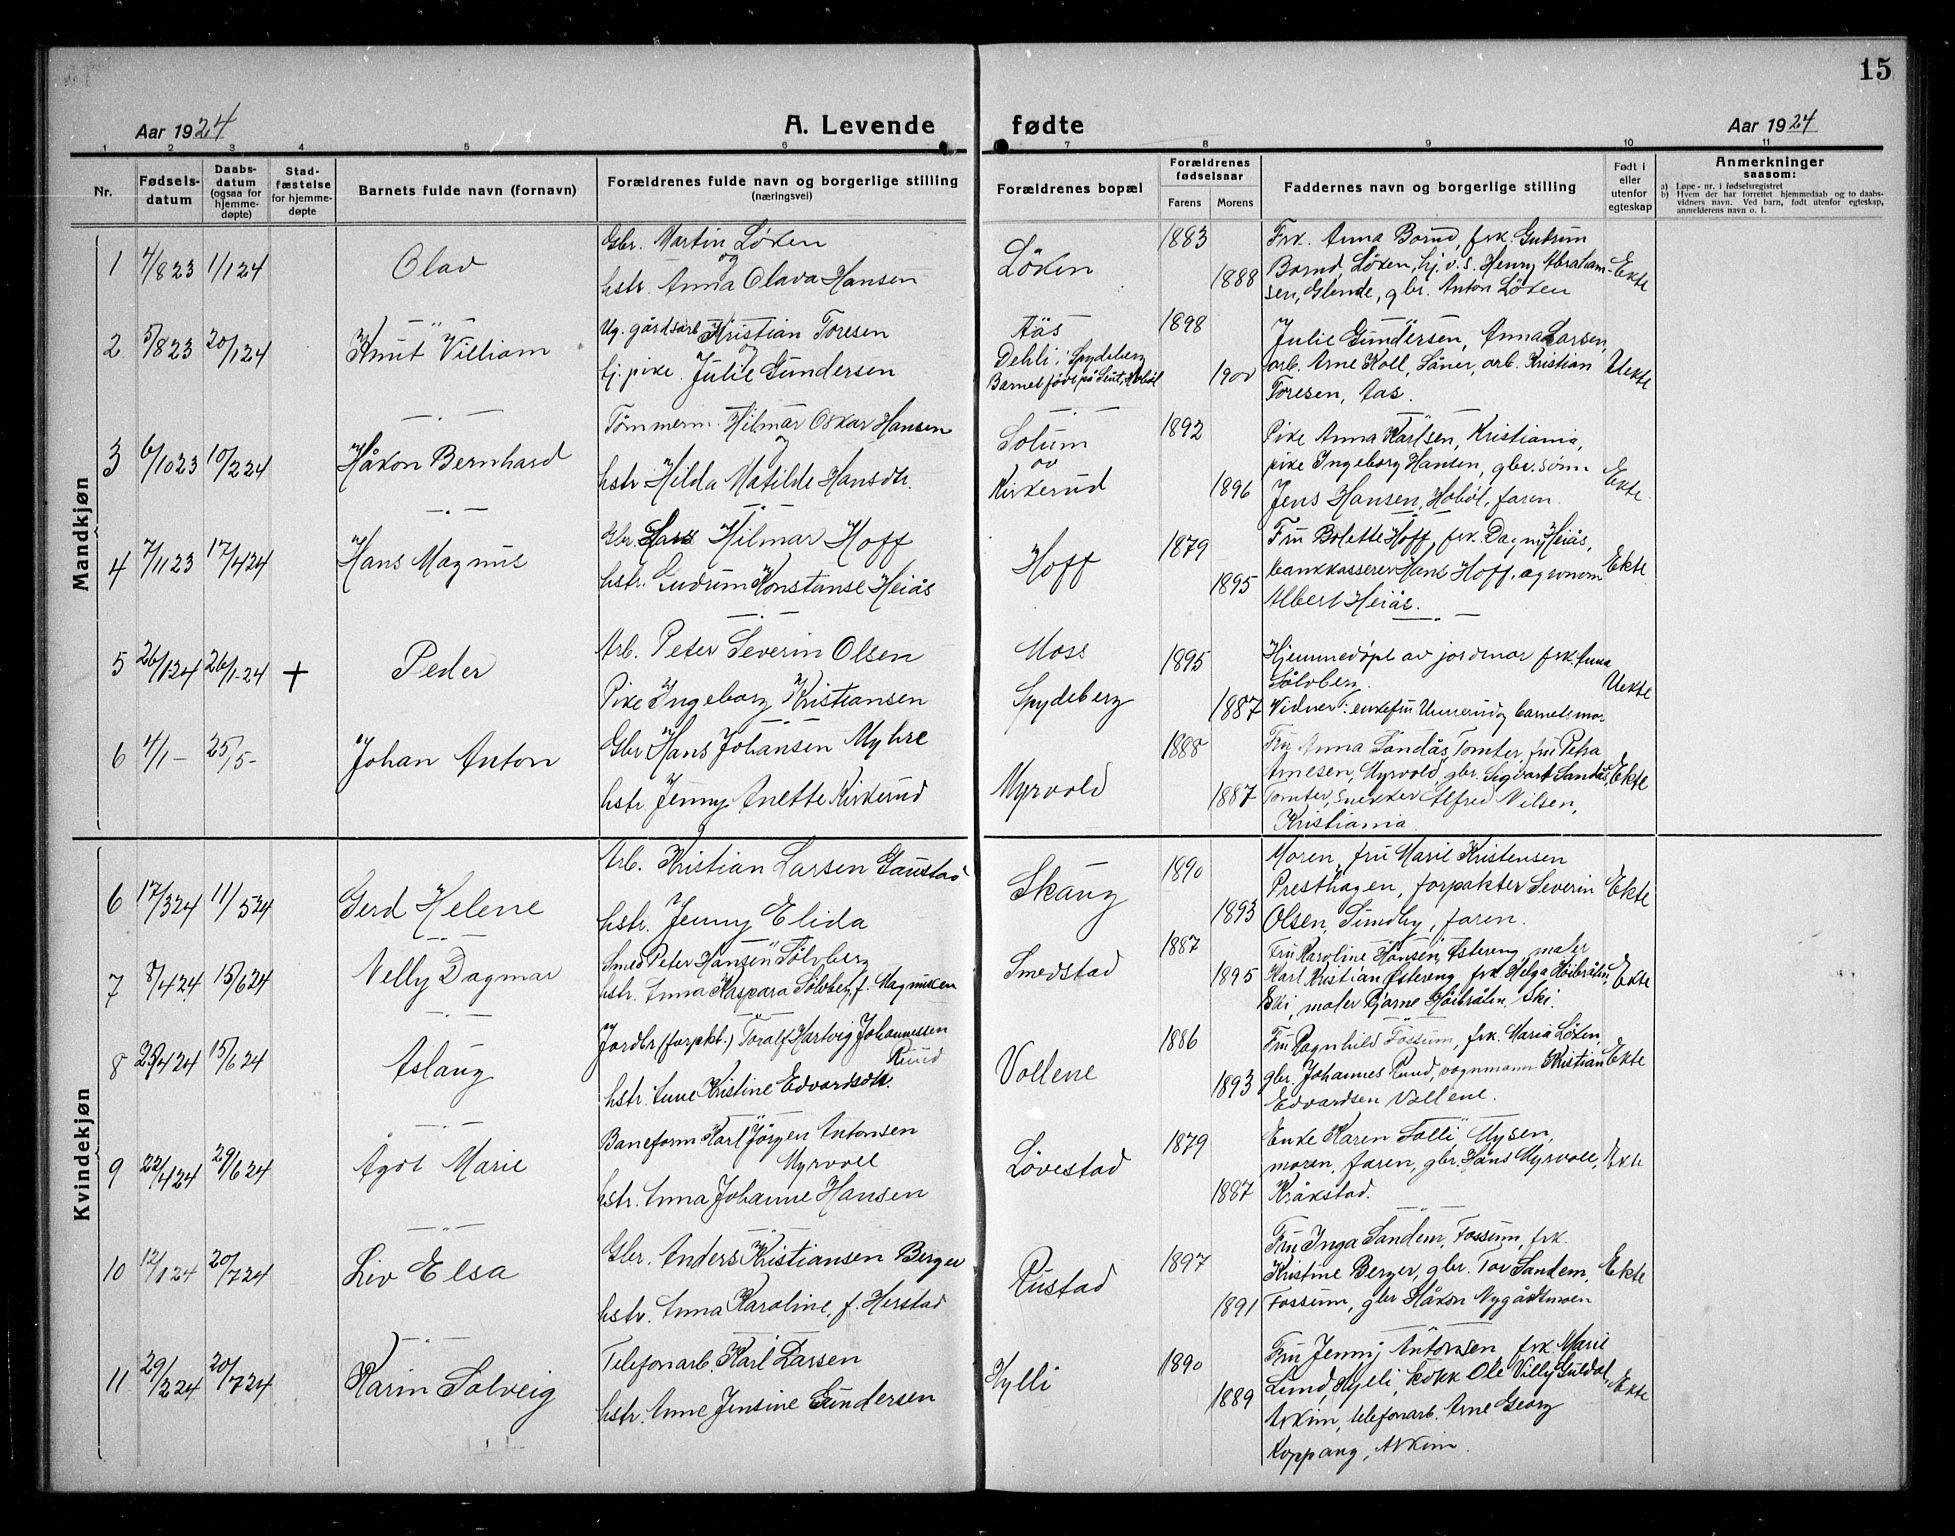 15
Aar 1924
A. Levende
fødte
Aar 1924
1 2 3 4 5 6 7 8 9 10 11
Nr.
Fødsels-
datum
Daabs-
datum
(ogsaa for
hjemme-
døpte)
Stad-
fæstelse
for hjemme-
døpte
Barnets fulde navn (fornavn)
Forældrenes fulde navn og borgerlige stilling
(næringsvei)
Forældrenes bopæl
Forældrenes
fødselsaar
Farens Morens
Faddernes navn og borgerlige stilling
Født i
eller
utenfor
egteskap
Anmerkninger
saasom:
a) Løpe-nr. i fødselsregistret
b) Hvem der har forrettet hjemmedaab og to daabs-
vidners navn. Ved barn, født utenfor egteskap,
anmelderens navn o. l.
Mandkjøn
1 4/8 23 1/1 24 Olav
Gbr. Martin Löken
og
hstr. Anna Olava Hansen
Löken
1883
1888
Frk. Anna Bornd, frk. Gudrum
Bornd, Löken, hj.v.s. Henry Abraham-
sen, Glende, gbr. Anton Löken
Ekte
2 5/8 23 20/1 24 Knut Villiam
Ug. gårdsarb. Kristian Toresen
og
hj. pike. Julie Gundersen
Aäs
Dehli i Spydeberg
Barnet født på Hobøl
1898
1900
Julie Gundersen, Anna Larsen,
arb. Arne Koll, Såner, arb. Kristian
Toresen, Aas.
Uekte
3 6/10 23 10/2 24 Håkon Bernhard
Tømmerm. Hilmar Oskar Hansen
og
hstr. Hilda Matilde Hansdtr.
Solum
av
Kirkerud
1892
1896
Pike Anna Karlsen, Kristiania,
pike Ingeborg Hansen, gbr.sønn
Jens Hansen, Hobøl, faren.
Ekte
4 7/11 23 17/4 24 Hans Magnus
Gbr. Hans Hilmar Hoff
hstr. Gudrum Konstanse Heiås
Hoff
1879
1895
Fru Bolette Hoff, frk. Dagny Heiås,
bankkasserer Hans Hoff, agronom
Albert Heiås.
Ekte
5 26/1 24 26/1-24 + Peder
Arb. Peter Severin Olsen
Pike Ingeborg Kristiansen
Moss
Spydeberg
1895
1887
Hjemmedøpt av jordmor frk. Anna
Sölvberg.
Vidner: enkefru Unnerud og barnets mor
Uekte
6 4/1 - 25/5 - Johan Anton
Gbr Hans Johansen Myhre
hstr Jenny Anette Kirkerud
Myrvold
1888
1887
Fru Anna Sandås, Tomter, fru Petra
Arnesen, Myrvold, gbr. Sigvart Sandås,
Tomter, snekker Alfred Nilsen,
Kristiania.
Ekte
Kvindekjøn
6 17/3 24 11/5 24 Gerd Helene
Arb. Kristian Larsen Gaustad
hstr. Jenny Elida
Skaug
1890
1893
Moren, fru Marie Kristensen
Presthagen, forpakter Severin
Olsen, Sundby, faren.
Ekte
7 8/4 24 15/6 24 Nelly Dagmar
Smed Peter Hansen Sölvberg
hstr. Anna Kaspara Sölvber, f. Magnusen
Smedstad
1887
1895
Fru Karoline Hansen, Østereng, maler
Karl Kristian Østereng, frk. Helga Höibråten,
Ski, maler Bjarne Höibråten, Ski.
Ekte
8 28/4 24 15/6 24 Aslaug
Jordbr (forpakt.) Toralf Hartvig Johannessen
Ruud
hstr. Anne Kristine Edvardsdtr.
Vollene
1886
1893
Fru Ragnhild Fossum, frk. Maria Löken,
gbr. Johannes Ruud, vognmann Kristian
Edvardsen Vollene.
Ekte
9 22/4 24 29/6 24 Ågot Marie
Baneform. Karl Jörgen Antonsen
Myrvoll
hstr. Anna Johanne Hansen
Lövestad
1879
1887
Enke Karen Solli, Mysen,
moren, faren, gbr. Hans Myrvoll,
Kråkstad.
Ekte
10 12/1 24 20/7 24 Liv Elsa
Gbr. Anders Kristiansen Berger
hstr. Anna Karoline, f. Herstad
Rustad
1897
1891
Fru Inga Sandem, Fossum, frk.
Kristine Berger, gbr. Tor Sandem,
Fossum, gbr Håkon Nygårdsmoen
Ekte
11 29/2 24 20/7 24 Karin Solveig
Telefonarb. Karl Larsen
hstr. Anne Jensine Gundersen
Hylli
1890
1889
Fru Jenny Antonsen, frk. Marie
Lund, Hylli, kokk Ole Villy Guldal,
Askim, telefonarb. Arne Georg
Koppang, Askim.
Ekte